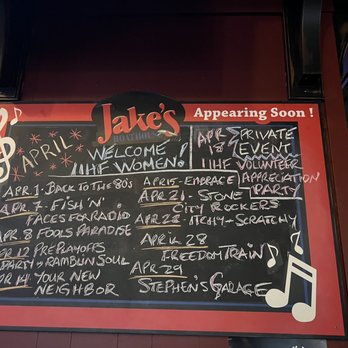 Jake's
BOATHOUSE
Appearing Soon !
APRIL
WELCOME
IIHF WOMEN!
APR 1 - BACK TO THE 80's
APR 7 - FISH 'N'
FACES FOR RADIO
APR 8 FOOLS PARADISE
APR 12 PRE PLAYOFFS
PARTY - RAMBLIN SOUL
APR 14 - YOUR NEW
NEIGHBOR
APR 15 - EMBRACE
APR 21 - STONE
CITY ROCKERS
APR 22 - ITCHY - SCRATCHY
APR 28
FREEDOM TRAIN
APR 29
STEPHENS GARAGE
APR 18
PRIVATE
EVENT
IIHF VOLUNTEER
APPRECIATION
PARTY